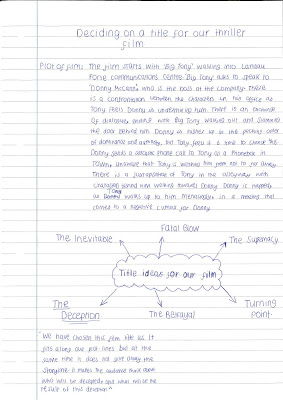 Deciding on a title for our thriller
film
Plot of film: The film starts with 'Big Tony' walking into Landau
Forte communications Centre. Big Tony asks to speak to
'Donny McCarte', who is the boss of the company. There
is a confrontation between the characters in his office as
Tony feels Donny is undermining him. There is an
of dialogue, ending with Big Tony walking out and slamming
the door behind him. Donny is higher up in the pecking order
of dominance and authority, but Tony feels it is time to change this.
Donny sends a phone call to Tony in a phonebox in
Town,
There is a juxtaposition of Tony in the alleyway with
behind him walking towards Donny. Donny is
as Tony walks up to him menacingly in a meeting that
comes to a negative for Donny.
Fatal Blow
The Inevitable
The Supremacy
Title ideas for our film
The
Deception
The Betrayal
Turning
point.
"We have chosen this film title as it
fits along our plot lines but at the
same time it does not give away the
storyline. It makes the audience think about
who will be deceived, and what will be the
result of this deception"